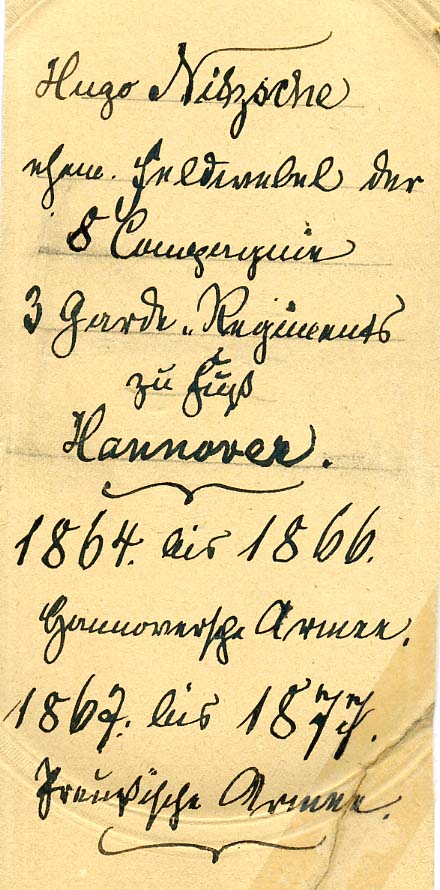 Hugo Nitzsche
ehem. Feldwebel der
8 Compagnie
3 Garde-Regiments
zu Fuß
Hannover.
1864. bis 1866.
Hannoversche Armee.
1867. bis 1877.
Preußische Armee.